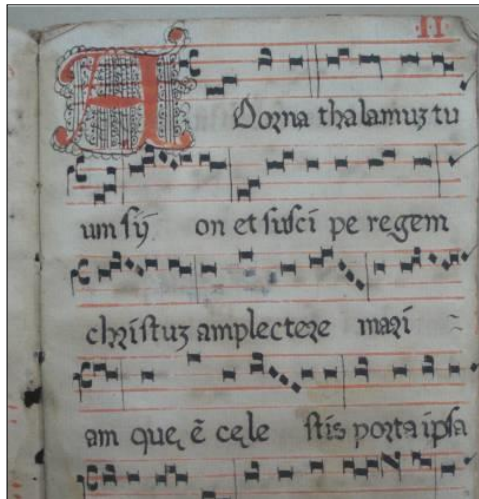 II
ADorna thalamuz tu
um sÿ on et susci pe regem
chriſtuz amplectere mari =
am quę ē cęle ſtis porta ipſa